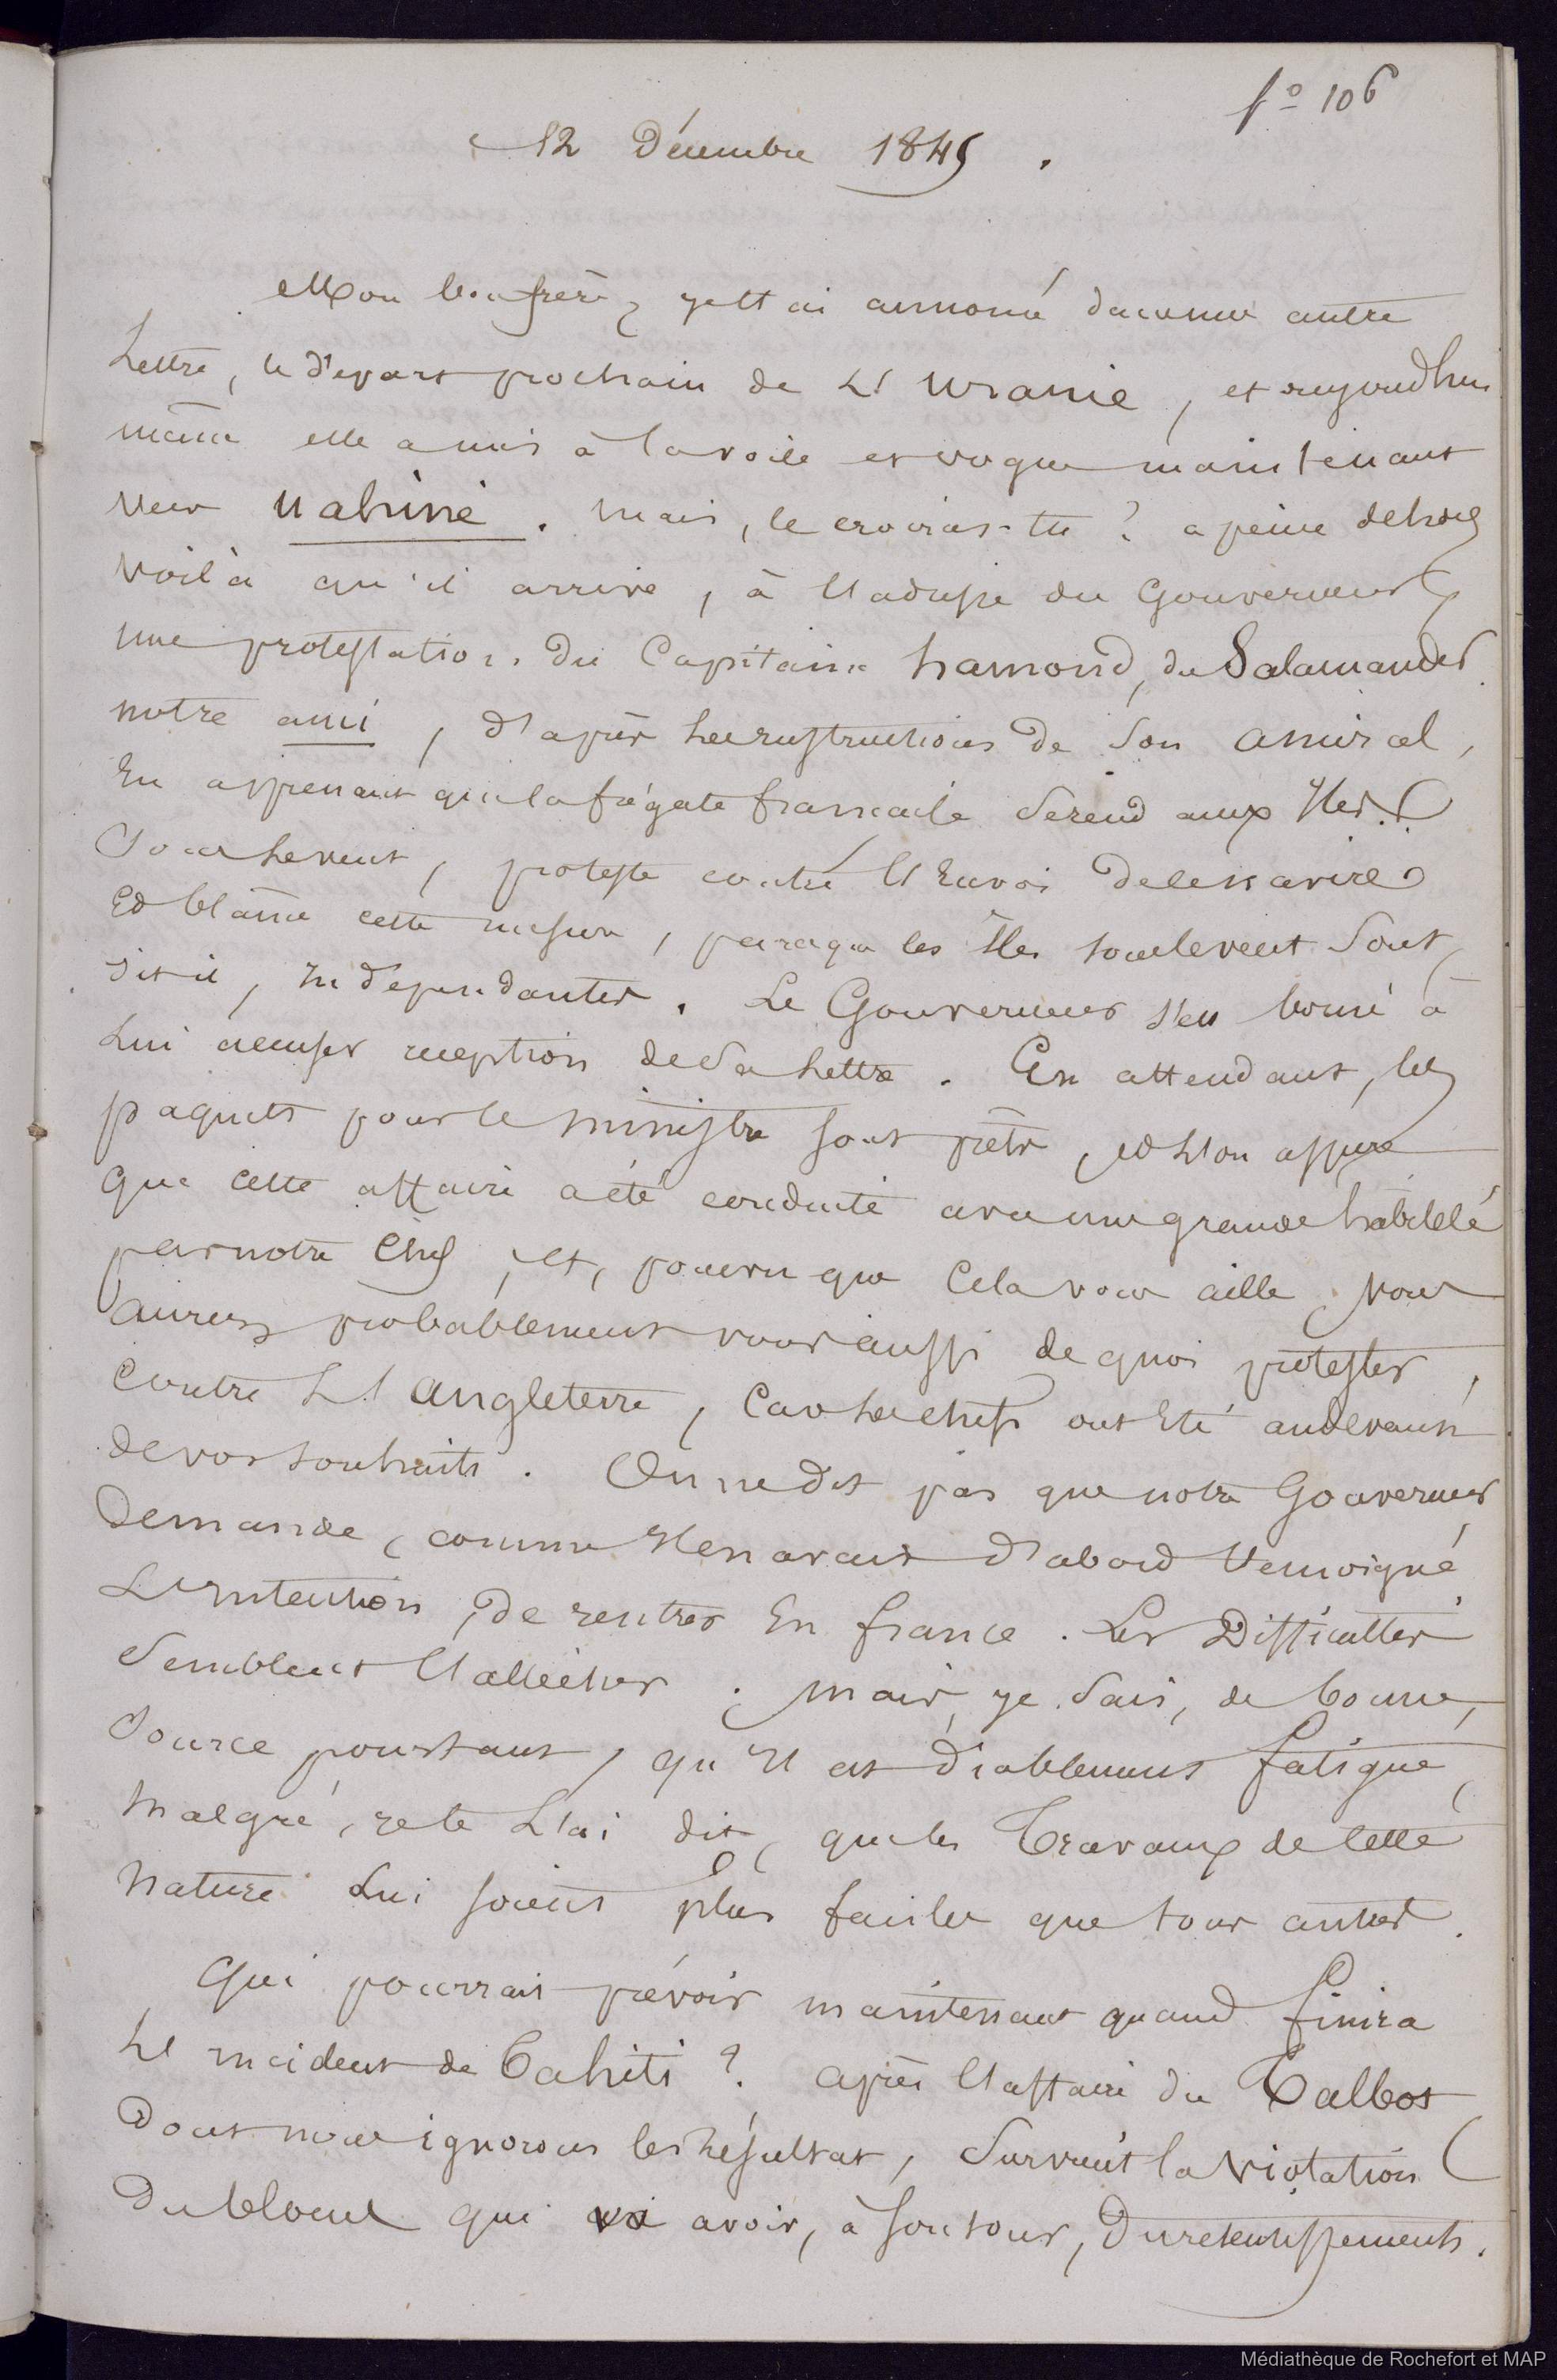 fº 106
12 Décembre 1845.
Mon bon frère, je t'ai annoncé dans une autre
Lettre, le départ prochain de L'Uranie, et aujourd'hui
même elle a mis à la voile et vogue maintenant
vers Uahiné. Mais, le croiras-tu ? a peine dehors
voilà qu'il arrive, à l'adresse du Gouverneur,
une protestation. Du Capitaine hamond, du Salamander
notre ami, d'après les instructions de son amiral,
En apprenant que la frégate francaise se rend aux Iles
sous le vent, proteste contre l'Envoi de ce navire
Et blâme cette mesure, parceque les Iles sous le vent sont,
dit-il, Indépendantes. Le Gouverneur s'est borné à
Lui accuser reception de sa Lettre. En attendant, les
paquets pour le ministre sont prêts, et l'on assure
que cette affaire a été conduite avec une grande habileté
par notre Chef, et, pourvu que Cela vous aille, vous
aurez probablement vous aussi de quoi protester,
contre L'angleterre, Car les chefs ont Eté audevant
de vos souhaits. On ne dit pas que notre Gouverneur
Demande, comme Il en avait d'abord témoigné
L'Intention, de rentrer En france. Les Difficultés
semblent l'allécher. Mais, je sais, de bonne,
source pourtant, qu'Il est diablement fatigué,
Malgré, je te L'ai dit, que les Travaux de cette
nature Lui soient plus faciles que tous autres.
Qui pourrait prévoir maintenant quand finira
L'Incident de Tahiti ? après l'affaire du Talbot
Dont nous ignorons les résultat, Survient la Violation
Du blocus qui va avoir, à son tour, Du retentissement.
Médiathèque de Rochefort et MAP